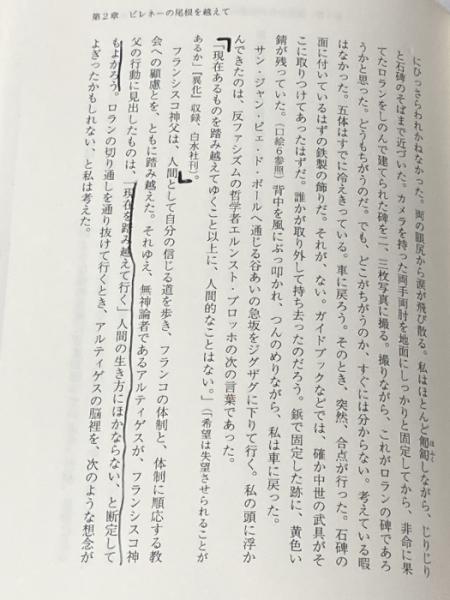 第２章　ピレネーの尾根を越えて
にひっさらわれかねなかった。両の眼尻から涙が飛び散る。私はほとんど匍匐しながら、じりじり
と石碑のそばまで近づいた。カメラを持った両手両肘を地面にしっかりと固定してから、非命に果
てたロランをしのんで建てられた碑を二、三枚写真に撮る。撮りながら、これがロランの碑であろ
うかと思った。どうもちがうのだ。でも、どこがちがうのか、すぐには分からない。考えている暇
はなかった。五体はすでに冷えきっている。車に戻ろう。そのとき、突然、合点が行った。石碑の
面に付いているはずの鉄製の飾りだ。それが、ない。ガイドブックなどでは、確か中世の武具がそ
こに取りつけてあったはずだ。誰かが取り外して持ち去ったのだろう。鋲で固定した跡に、黄色い
錆が残っていた。（口絵６参照）背中を風にぶっ叩かれ、つんのめりながら、私は車に戻った。
サン・ジャン・ピェ・ド・ポールへ通じる谷あいの急坂をジグザグに下りて行く。私の頭に浮か
んできたのは、反ファシズムの哲学者エルンスト・ブロッホの次の言葉であった。
「現在あるものを踏み越えてゆくこと以上に、人間的なことはない。」（「希望は失望させられることが
あるか」【異化】収録、白水社刊）。
フランシスコ神父は、人間として自分の信じる道を歩き、フランコの体制と、体制に順応する教
会への顧慮とを、ともに踏み越えた。それゆえ、無神論者であるアルティゲスが、フランシスコ神
父の行動に見出したものは、「現在を踏み越えて行く」人間の生き方にほかならない、と断定して
もよかろう。ロランの切り通しを通り抜けて行くとき、アルティゲスの脳裡を、次のような想念が
よぎったかもしれない、と私は考えた。